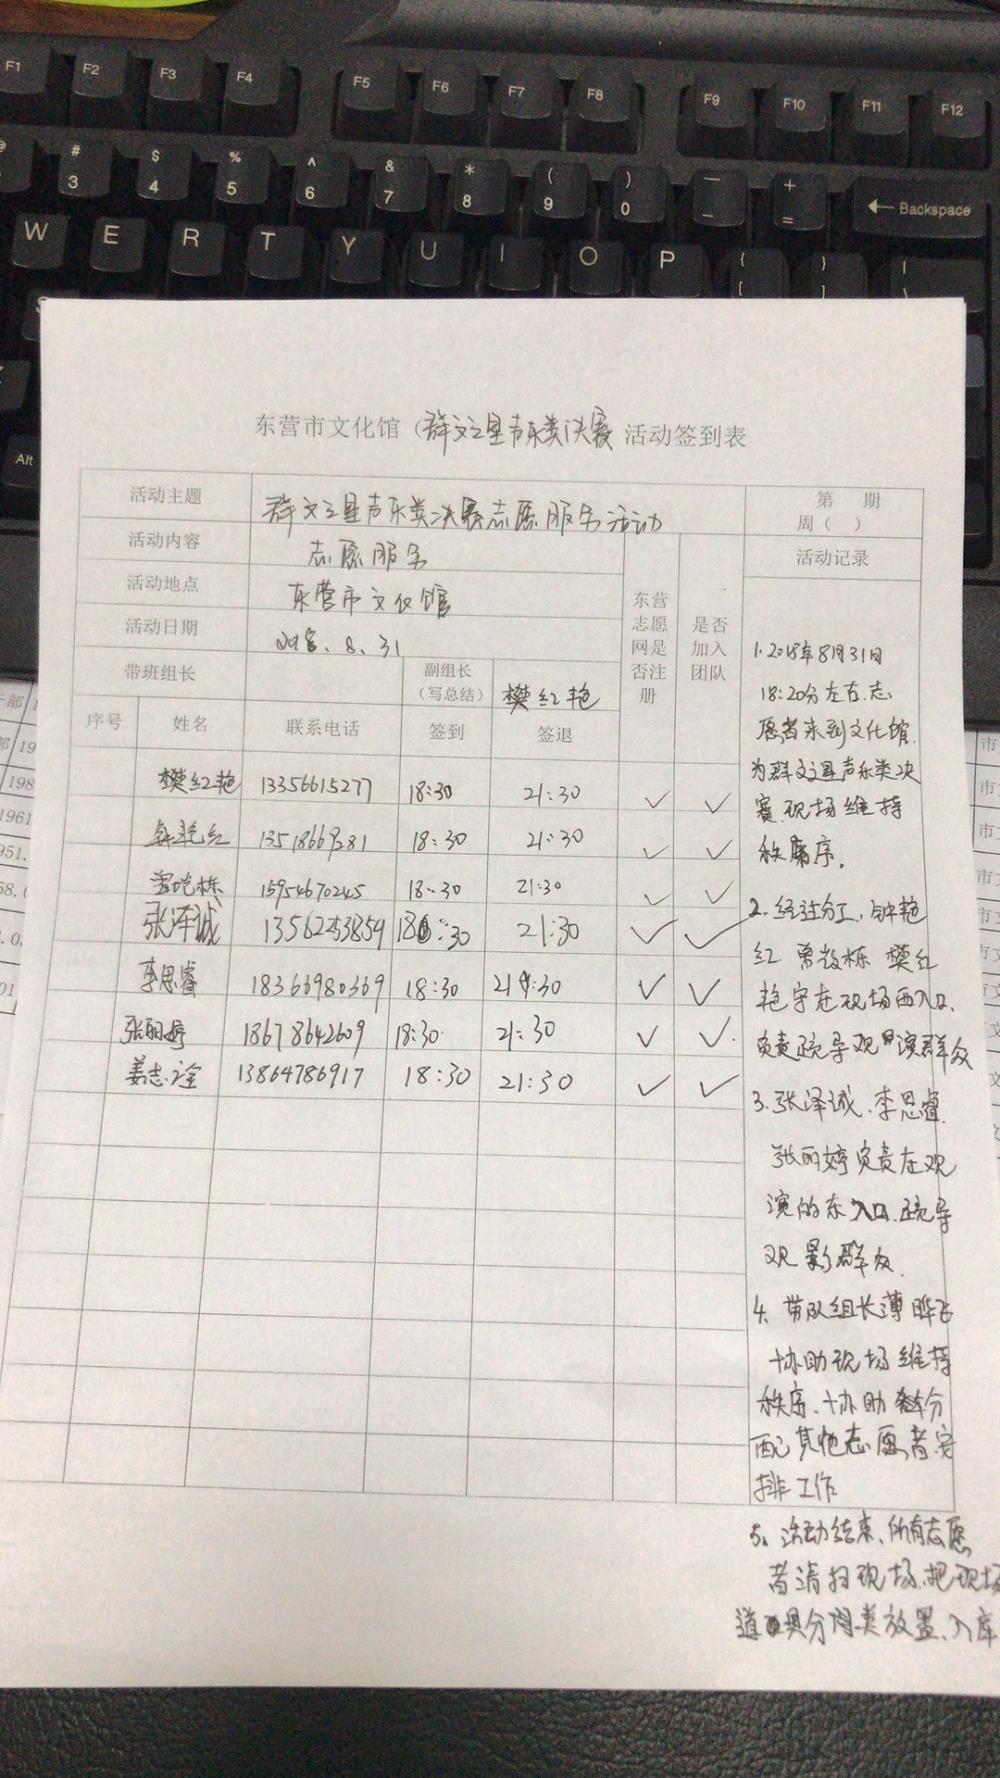 F1 F2 F3 F4 F5 F6 F7 F8 F9 F10 F11 F12
# 3 $ 4 % 5 ^ 6 & 7 * 8 ( 9 ) 0 — - + = ← Backspace
W E R T Y U I O P { [ } ] | \
Alt
东营市文化馆（群文之星声乐类决赛 活动签到表
活动主题 群文之星声乐类决赛志愿服务活动 第 期
周（ ）
活动内容 志愿服务 活动记录
活动地点 东营市文化馆
活动日期 2018.8.31
带班组长 副组长（写总结） 樊红艳
东营
志愿
网是
否注
册
是否
加入
团队
序号 姓名 联系电话 签到 签退
樊红艳 13356615277 18:30 21:30 ✓ ✓
18:30 21:30 ✓ ✓
15954670245 18:30 21:30 ✓ ✓
张泽诚 13562453854 18:30 21:30 ✓ ✓
李思睿 18366980369 18:30 21:30 ✓ ✓
张丽婷 18678642609 18:30 21:30 ✓ ✓
13864786917 18:30 21:30 ✓ ✓
1.2018年8月31日
18:20分左右.志
愿者来到文化馆.
为群文之星声乐类决
赛现场维持
秩序.
2.经过分工,钟艳
红 樊红
艳守在现场西入口.
负责疏导观演群众
3.张泽诚.李思睿.
张丽婷负责在观
演的东入口.疏导
观影群众.
4.带队组长薄晔飞
协助现场维持
秩序、协助分
配其他志愿者安
排工作
5、活动结束、所有志愿
者清扫现场.把现场
道具分类放置、入库